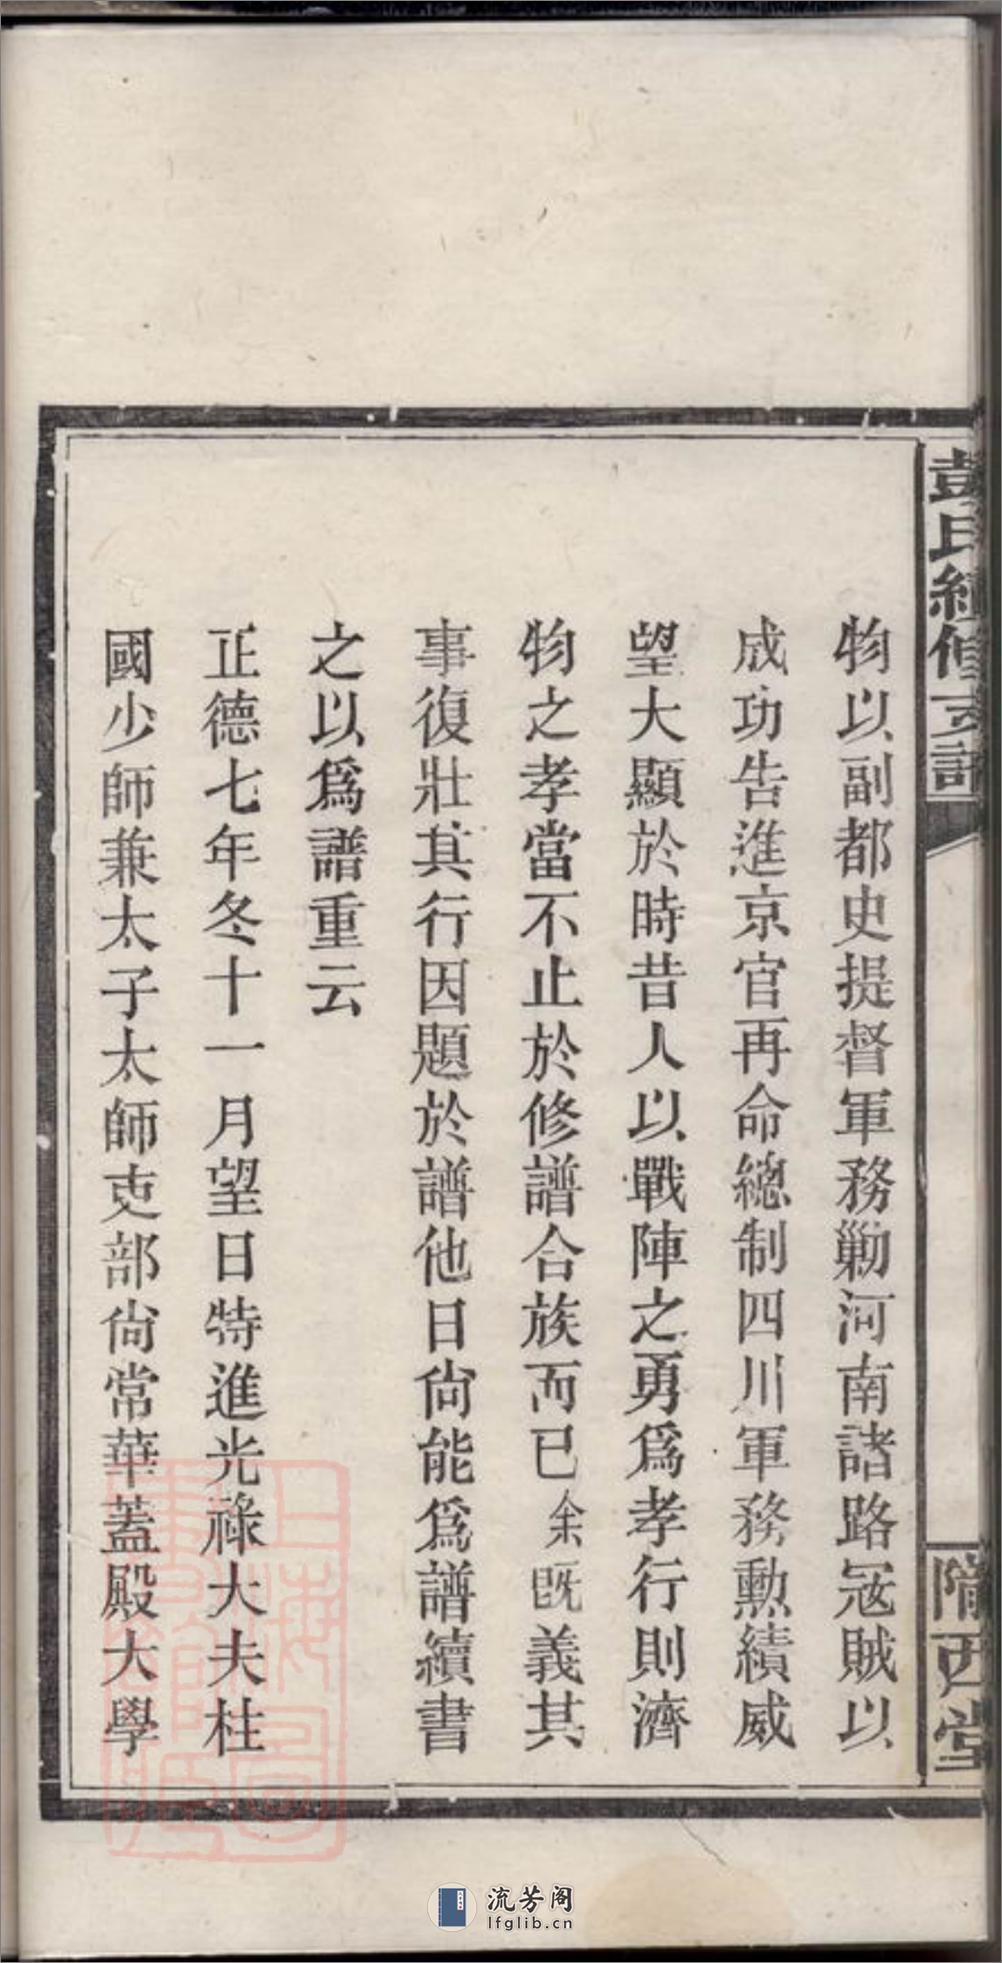 彭氏續修支譜
隴西堂
物以副都史提督軍務勦河南諸路冦賊以
成功告進京官再命總制四川軍務勳績威
望大顯於時昔人以戰陣之勇爲孝行則濟
物之孝當不止於修譜合族而已余既義其
事復壯其行因題於譜他日尙能爲譜續書
之以爲譜重云
正德七年冬十一月望日特進光祿大夫柱
國少師兼太子太師吏部尙常華蓋殿大學
上海圖
書館藏
流芳阁
lfglib.cn